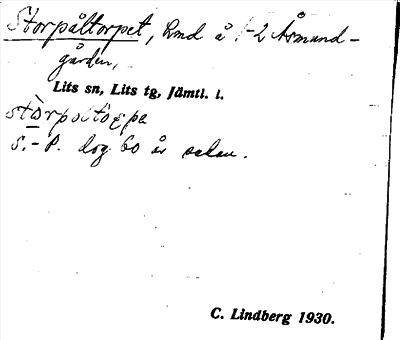 Storpåltorpet, lmd å 1-2 Åsmund-
gården,
Lits sn, Lits tg, Jämtl. l.
S.-P. dog 60 år sedan.
C. Lindberg 1930.